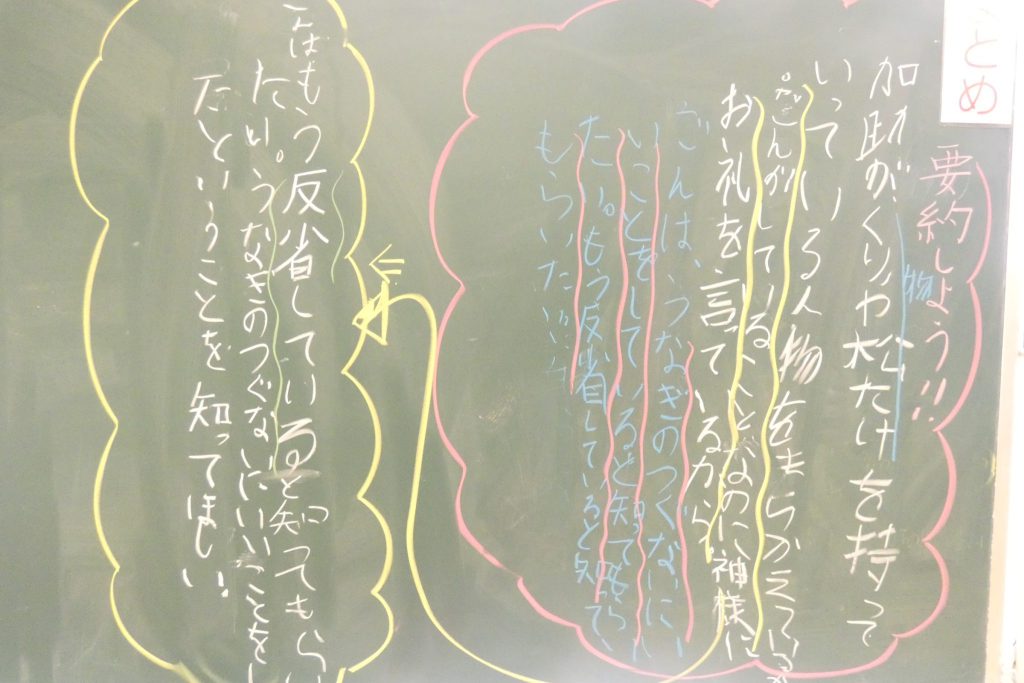 とめ
要約しよう!!
加助が、くりや松たけを持って
物
いっている人物をまちがえている
ごんがしていることなのに、神様に
お礼を言っているから。
ごんは、うなぎのつぐないにい
いことをしていると知ってもらい
たい。もう反省していると知って
もらいたい
んはもう反省していると知ってもらい
たい。うなぎのつぐないにいいことをし
たということを知ってほしい。